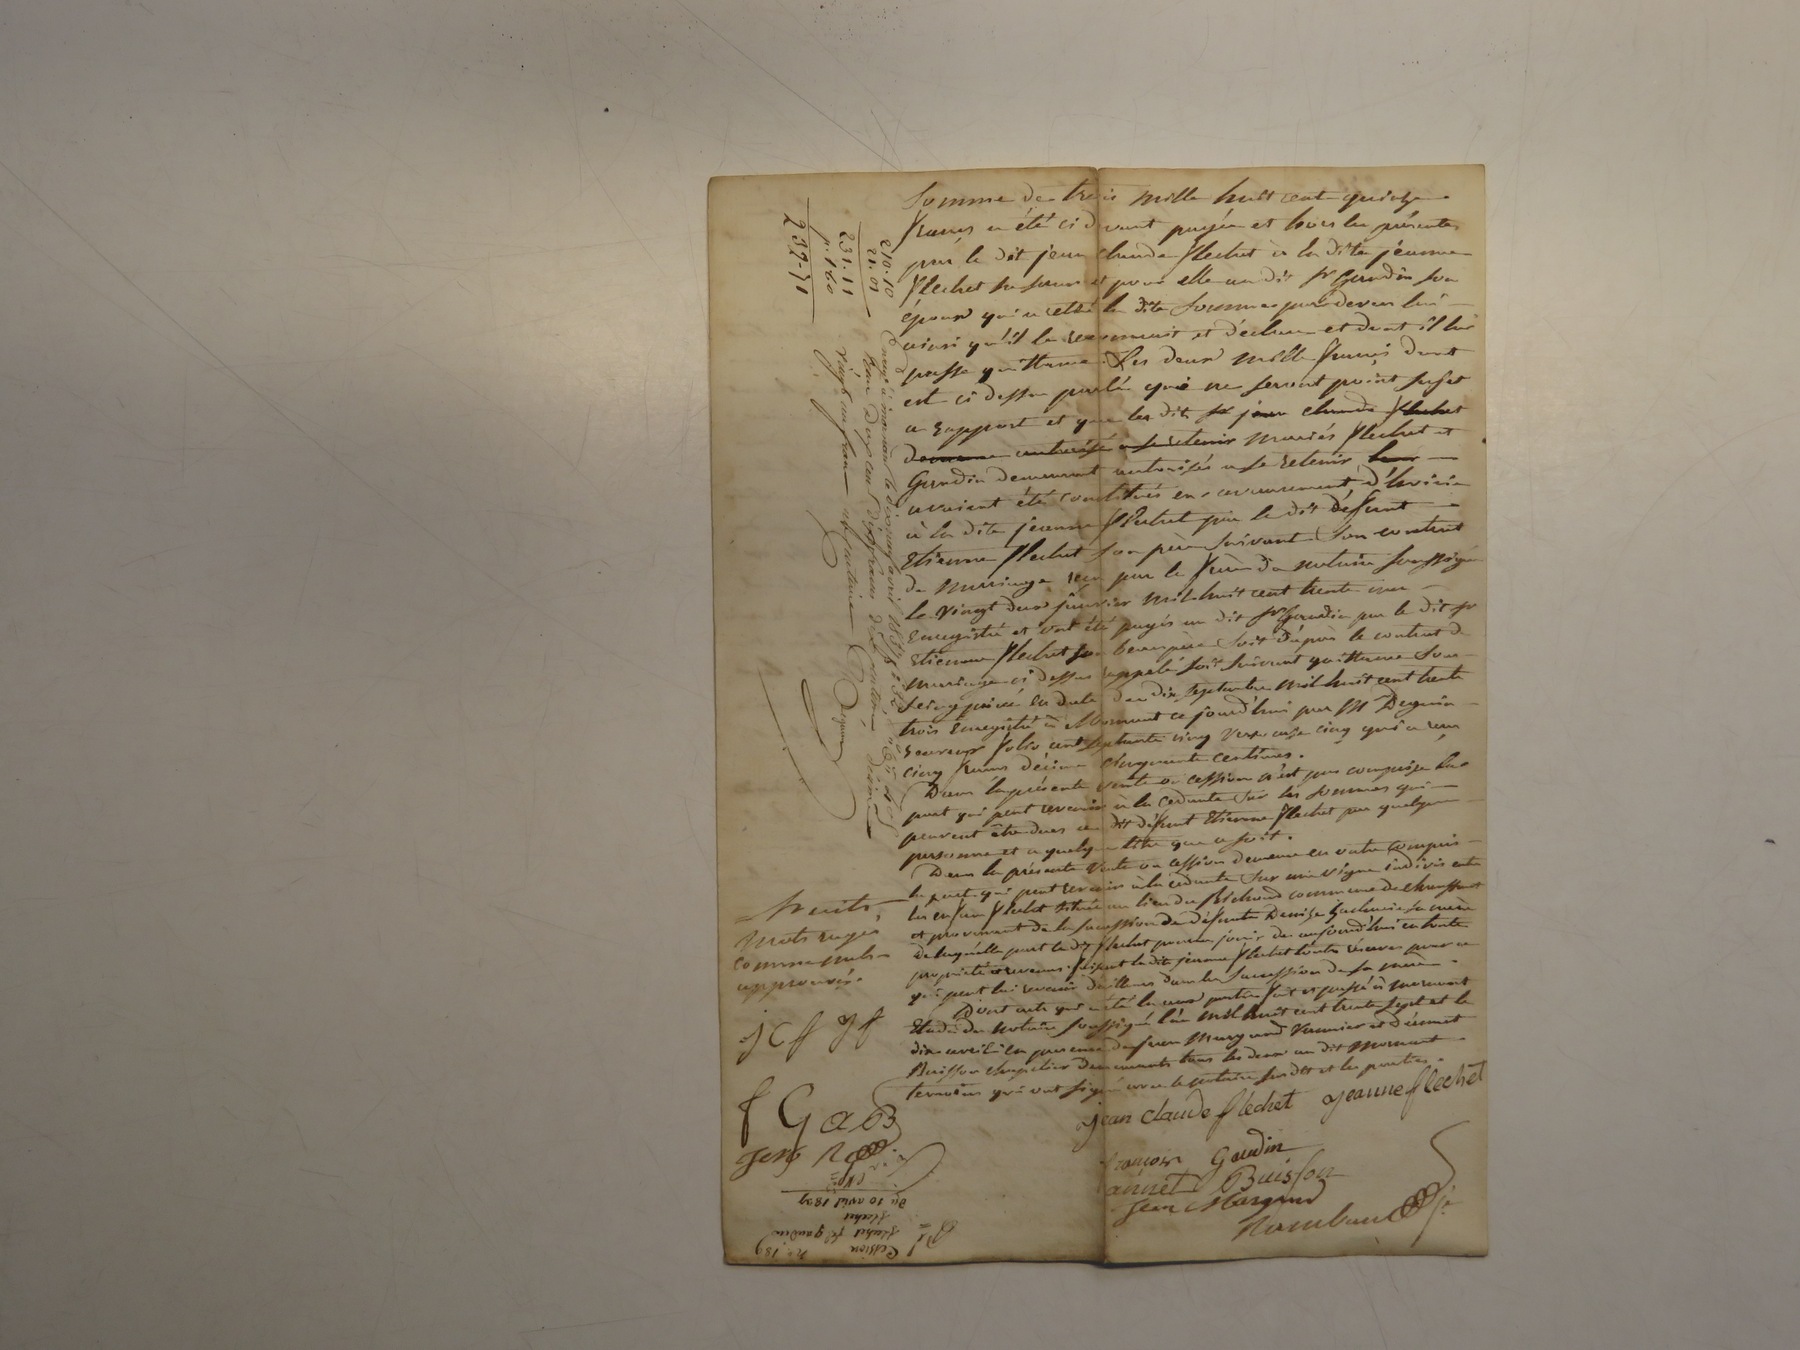 Somme de trois mille huit cent quinze
francs a été ci devant payée et hors les présentes
par le dit jean claude flechet à la dite jeanne
flechet sa soeur et pour elle au dit Sr Gaudin son
époux qui a retiré la dite somme pardevers lui
ainsi qu'il le reconnait et déclare et dont il lui
passe quittance. Les deux mille francs dont
est ci dessus parlé qui ne seront point sujet
a rapport et que les dits Sr jean claude flechet
demeure autorisé a se retenir mariés flechet et
Gaudin demeurent autorisés a se retenir
avaient été constitués en avancement d'hoirie
à la dite jeanne flechet par le dit défunt
Etienne flechet son père suivant son contrat
de mariage reçu par le frère du notaire soussigné
le vingt deux janvier mil huit cent trente
Enregistré et ont été payés au dit Sr Gaudin par le dit Sr
Etienne flechet son beau père soit d'après le contrat de
mariage ci dessus rappelé soit suivant quittance sous
seing privé en date du dix septembre mil huit cent trente
trois Enregistré à Mornant ce jourd'hui par Mr Deguin
receveur folio cent septante cinq verso case cinq qui a reçu
cinq francs décime cinquante centimes.
Dans la présente vente ou cession n'est pas comprise la
part qui peut revenir à la cedante sur les sommes qui
peuvent être dues au dit défunt Etienne flechet par quelque
personne et a quelque titre que ce soit.
Dans la présente vente ou cession demeure en outre comprise
la part qui peut revenir à la cedante sur une vigne indivise entre
les enfans flechet située au lieu du Richoud commune de chaussant
et provenant de la succession de défunte Denise Zacharie sa mère
de laquelle part le dit flechet pourra jouir des aujourd'hui en toute
propriété et revenus. faisant la dite jeanne flechet toutes réserves pour ce
qui peut lui revenir d'ailleurs dans la succession de sa mère.
Dont acte qui a été lu aux parties fait et passé à mornant
Etude du notaire soussigné l'an mil huit cent trente sept et le
dix avril en presence de jean Margand vannier et d'annet
Buisson chapelier demeurants tous les deux au dit Mornant
temoins qui ont signé avec le notaire susdit et les parties.
jean claude flechet jeanne flechet
françois Gaudin
annet Buisson
jean Margand
Rambaud
210.10
21.01
231.11
1.60
232.71
huit
mots rayés
comme nuls
approuvés.
j c ff j ff
f G a B
jean R
No. 189
Cession
flechet fe gaudin
flechet
Du 10 avril 1837